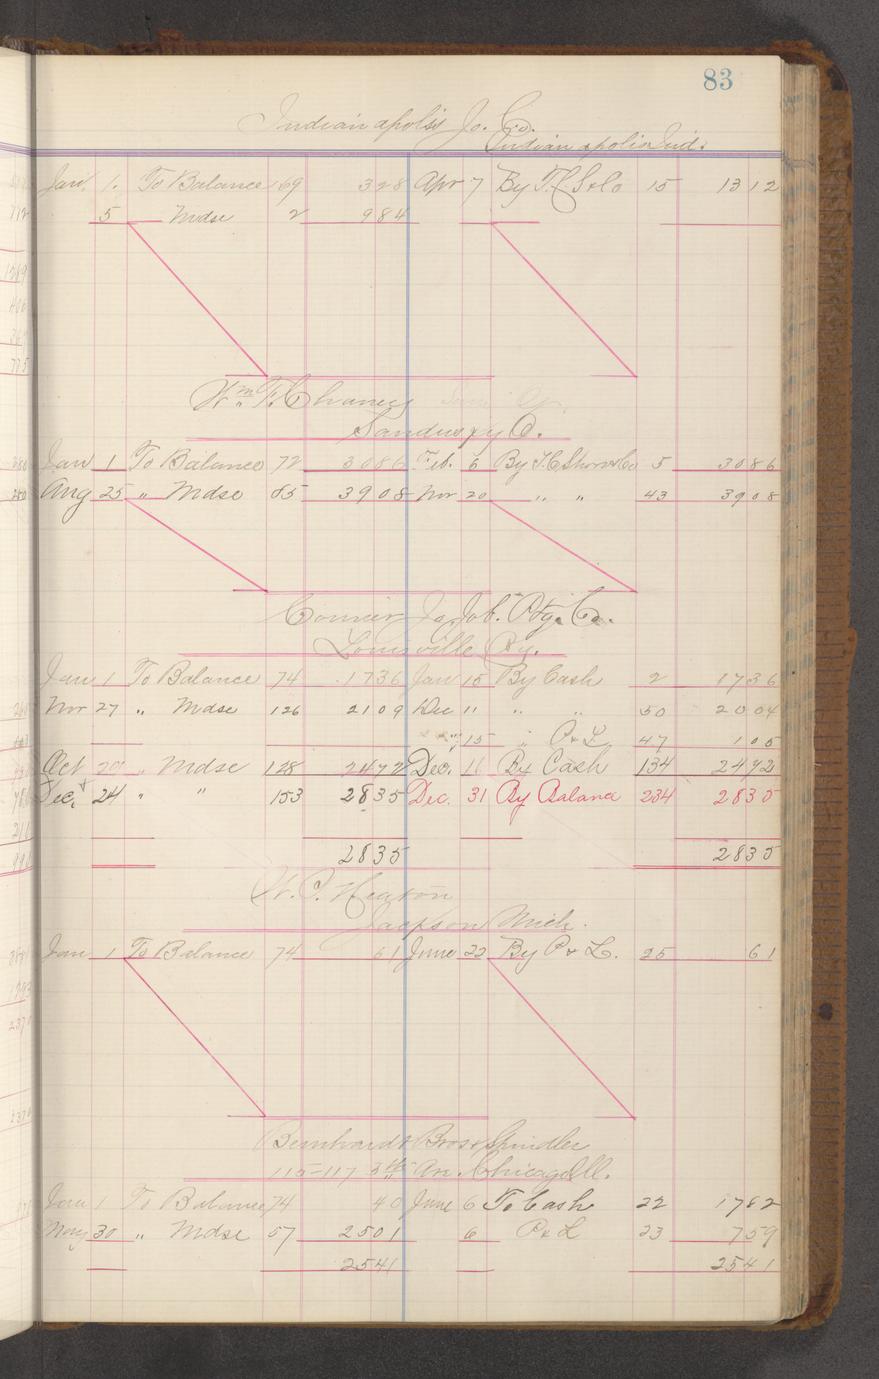 83
Indianapolis Jo. Co.
Indianapolis Ind.
Jan. 1. To Balance 69 328 Apr 7 By T.C.S & Co 15 1312
5 Mdse 2 984
Wm. T. Chaney
Sandusky O.
Jan 1 To Balance 72 3086 Feb. 6 By T.C. & Co 5 3086
Aug 25 " Mdse 85 3908 Nov 20 " " 43 3908
Courier Jo Job. Ptg. Co.
Louisville Ky.
Jan 1 To Balance 74 1736 Jan 15 By Cash 2 1736
Nov 27 " Mdse 126 2109 Dec 11 " " 50 2004
" 15 " P & L 47 105
Oct 29 " Mdse 128 2472 Dec. 16 By Cash 134 2472
Dec. 24 " " 153 2835 Dec. 31 By Balance 234 2835
2835 2835
Heaton
Jackson Mich.
Jan 1 To Balance 74 61 June 22 By P & L. 25 61
Bernhardt Bros & Spindler
115-117 5th Av. Chicago Ill.
Jan 1 To Balance 74 40 June 6 To Cash 22 1782
May 30 " Mdse 57 2501 6 P & L 23 759
2541 2541